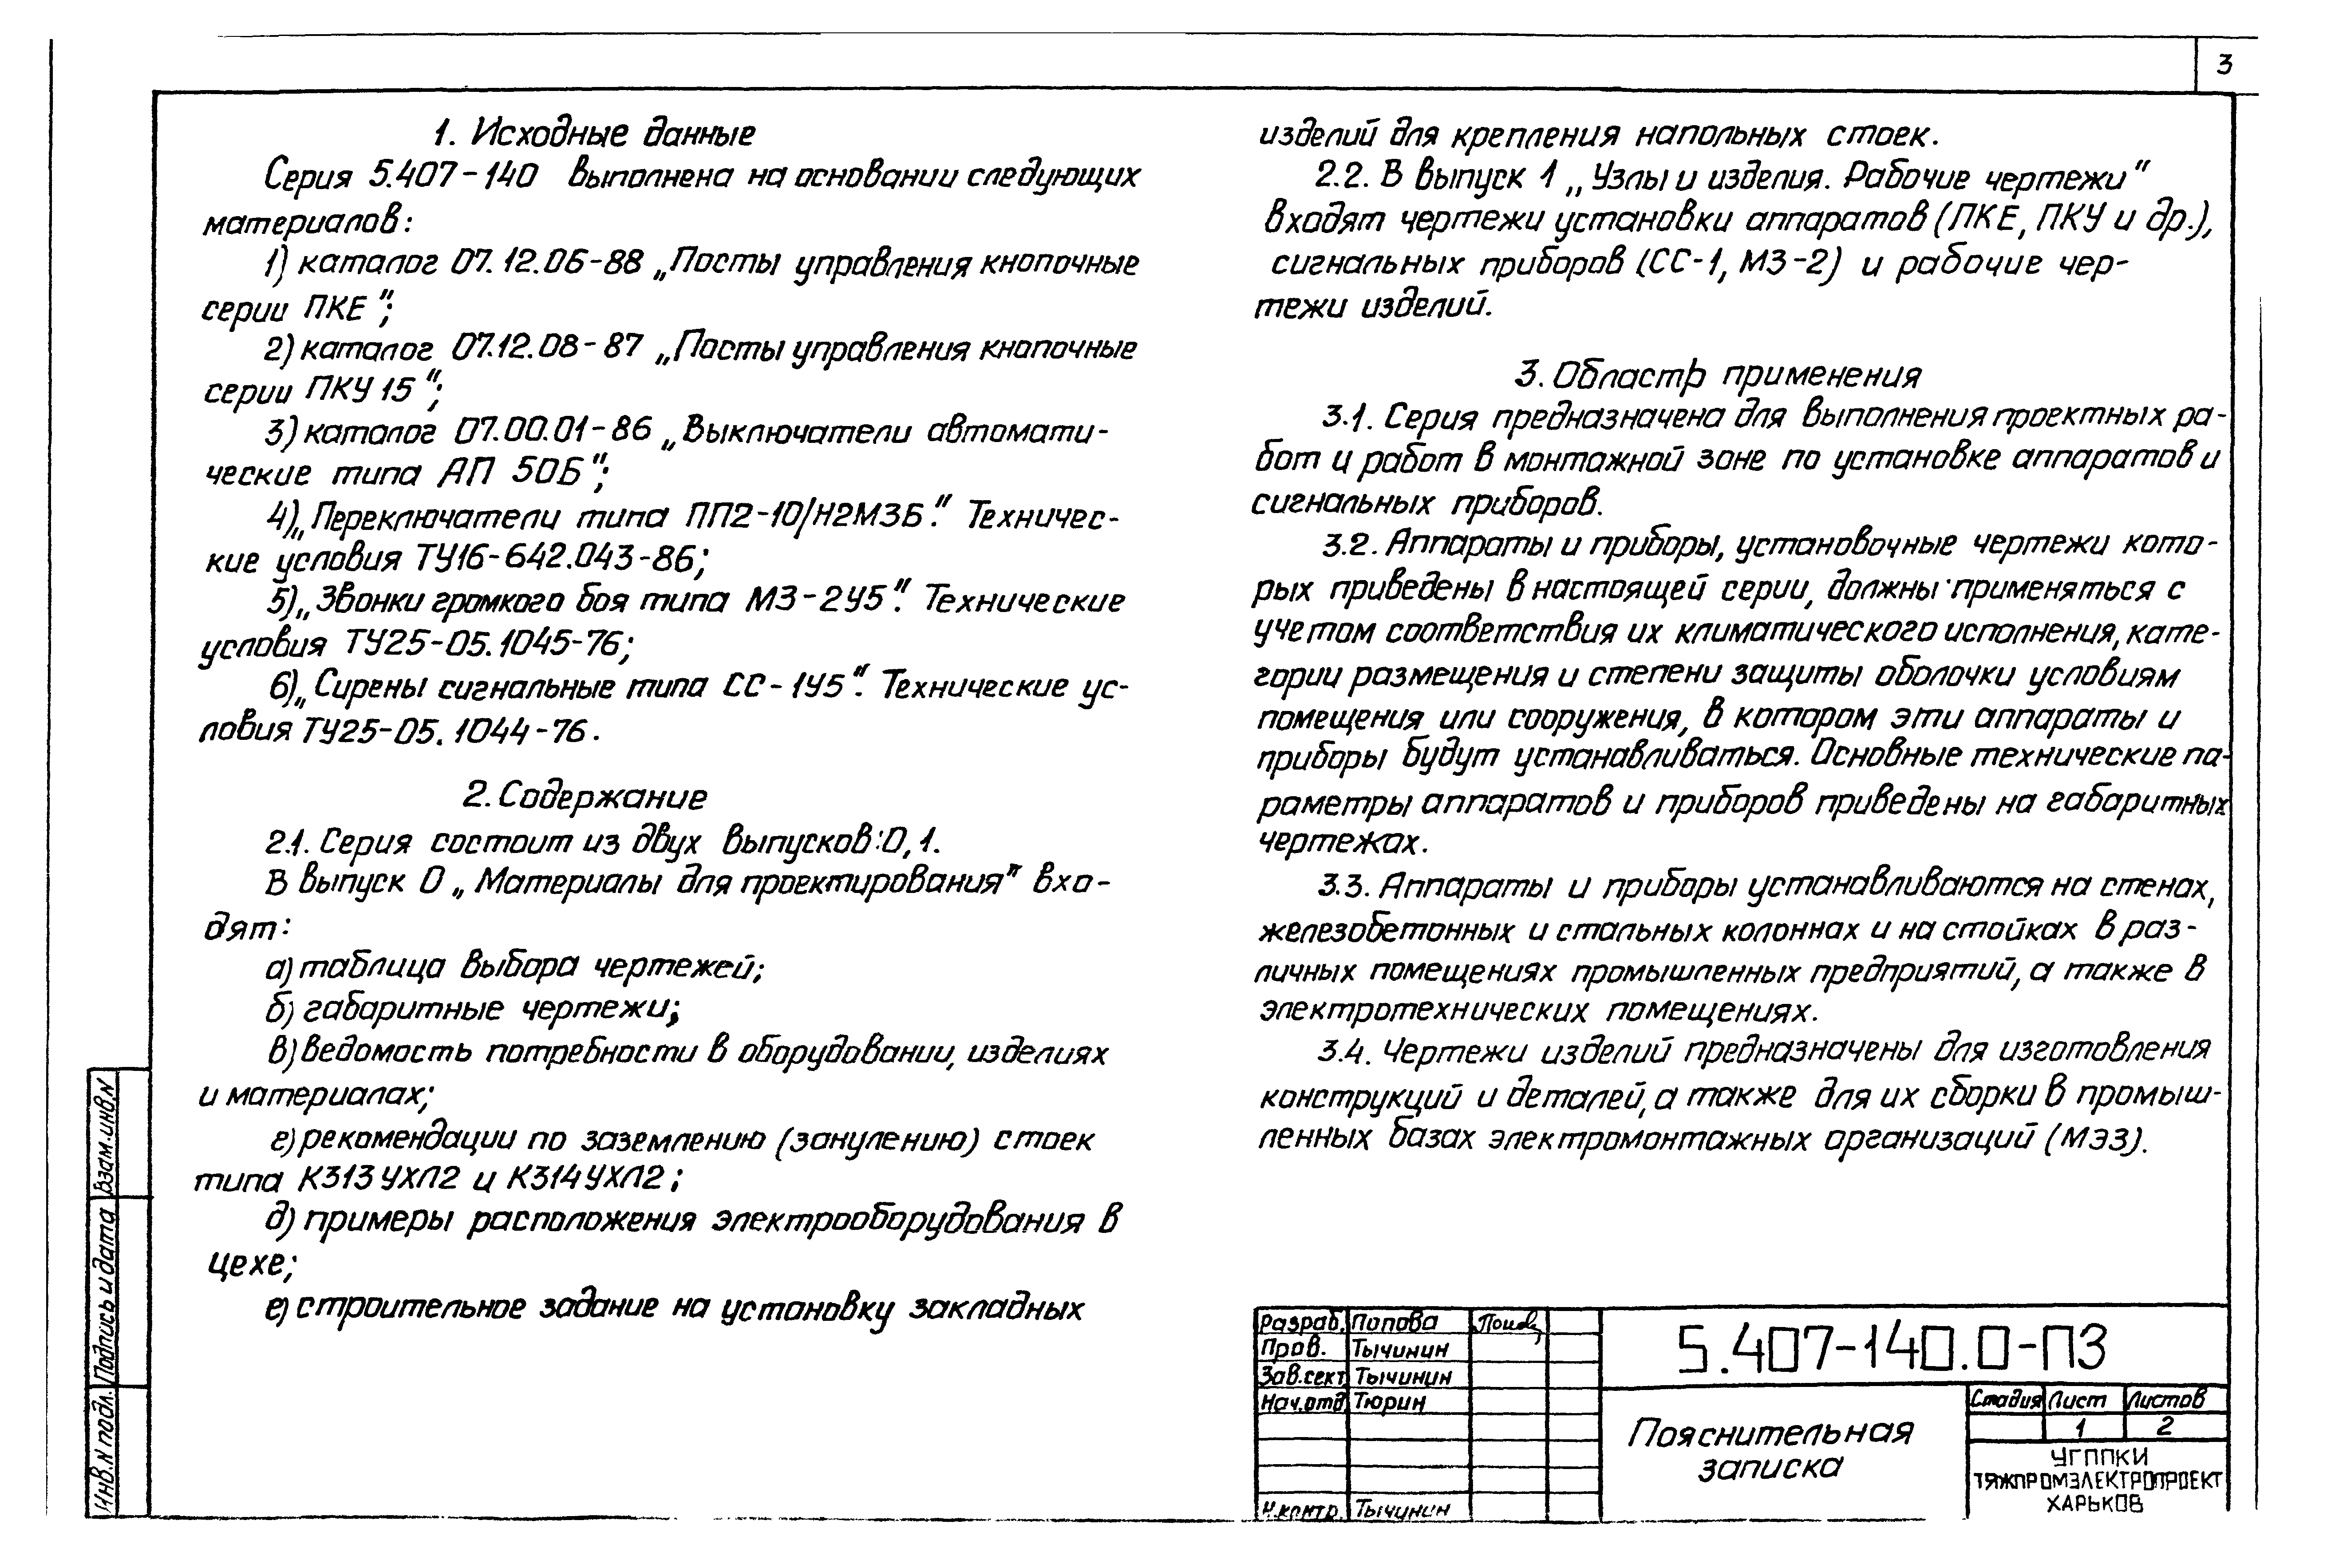 3
1. Исходные данные
Серия 5.407-140 выполнена на основании следующих
материалов:
1) каталог 07.12.06-88 „Посты управления кнопочные
серии ПКЕ";
2) каталог 07.12.08-87 „Посты управления кнопочные
серии ПКУ 15";
3) каталог 07.00.01-86 „Выключатели автомати-
ческие типа АП 50Б";
4) „Переключатели типа ПП2-10/Н2МЗБ". Техничес-
кие условия ТУ16-642.043-86;
5) „Звонки громкого боя типа МЗ-2У5". Технические
условия ТУ25-05.1045-76;
6) „Сирены сигнальные типа СС-1У5". Технические ус-
ловия ТУ25-05.1044-76.
2. Содержание
2.1. Серия состоит из двух выпусков: 0, 1.
В выпуск 0 „Материалы для проектирования" вхо-
дят:
а) таблица выбора чертежей;
б) габаритные чертежи;
в) ведомость потребности в оборудовании, изделиях
и материалах;
г) рекомендации по заземлению (занулению) стоек
типа К313УХЛ2 и К314УХЛ2;
д) примеры расположения электрооборудования в
цехе;
е) строительное задание на установку закладных
изделий для крепления напольных стоек.
2.2. В выпуск 1 „Узлы и изделия. Рабочие чертежи"
входят чертежи установки аппаратов (ПКЕ, ПКУ и др.),
сигнальных приборов (СС-1, МЗ-2) и рабочие чер-
тежи изделий.
3. Область применения
3.1. Серия предназначена для выполнения проектных ра-
бот и работ в монтажной зоне по установке аппаратов и
сигнальных приборов.
3.2. Аппараты и приборы, установочные чертежи кото-
рых приведены в настоящей серии, должны применяться с
учетом соответствия их климатического исполнения, кате-
гории размещения и степени защиты оболочки условиям
помещения или сооружения, в котором эти аппараты и
приборы будут устанавливаться. Основные технические па-
раметры аппаратов и приборов приведены на габаритных
чертежах.
3.3. Аппараты и приборы устанавливаются на стенах,
железобетонных и стальных колоннах и на стойках в раз-
личных помещениях промышленных предприятий, а также в
электротехнических помещениях.
3.4. Чертежи изделий предназначены для изготовления
конструкций и деталей, а также для их сборки в промыш-
ленных базах электромонтажных организаций (МЭЗ).
Взам.инв.N
Подпись и дата
Инв.N подл.
Разраб. Попова
Пров. Тычинин
Зав.сект Тычинин
Нач.отд. Тюрин
Н.контр. Тычинин
5.407-140.0-ПЗ
Пояснительная
записка
Стадия Лист Листов
1 2
УГППКИ
ТЯЖПРОМЭЛЕКТРОПРОЕКТ
ХАРЬКОВ